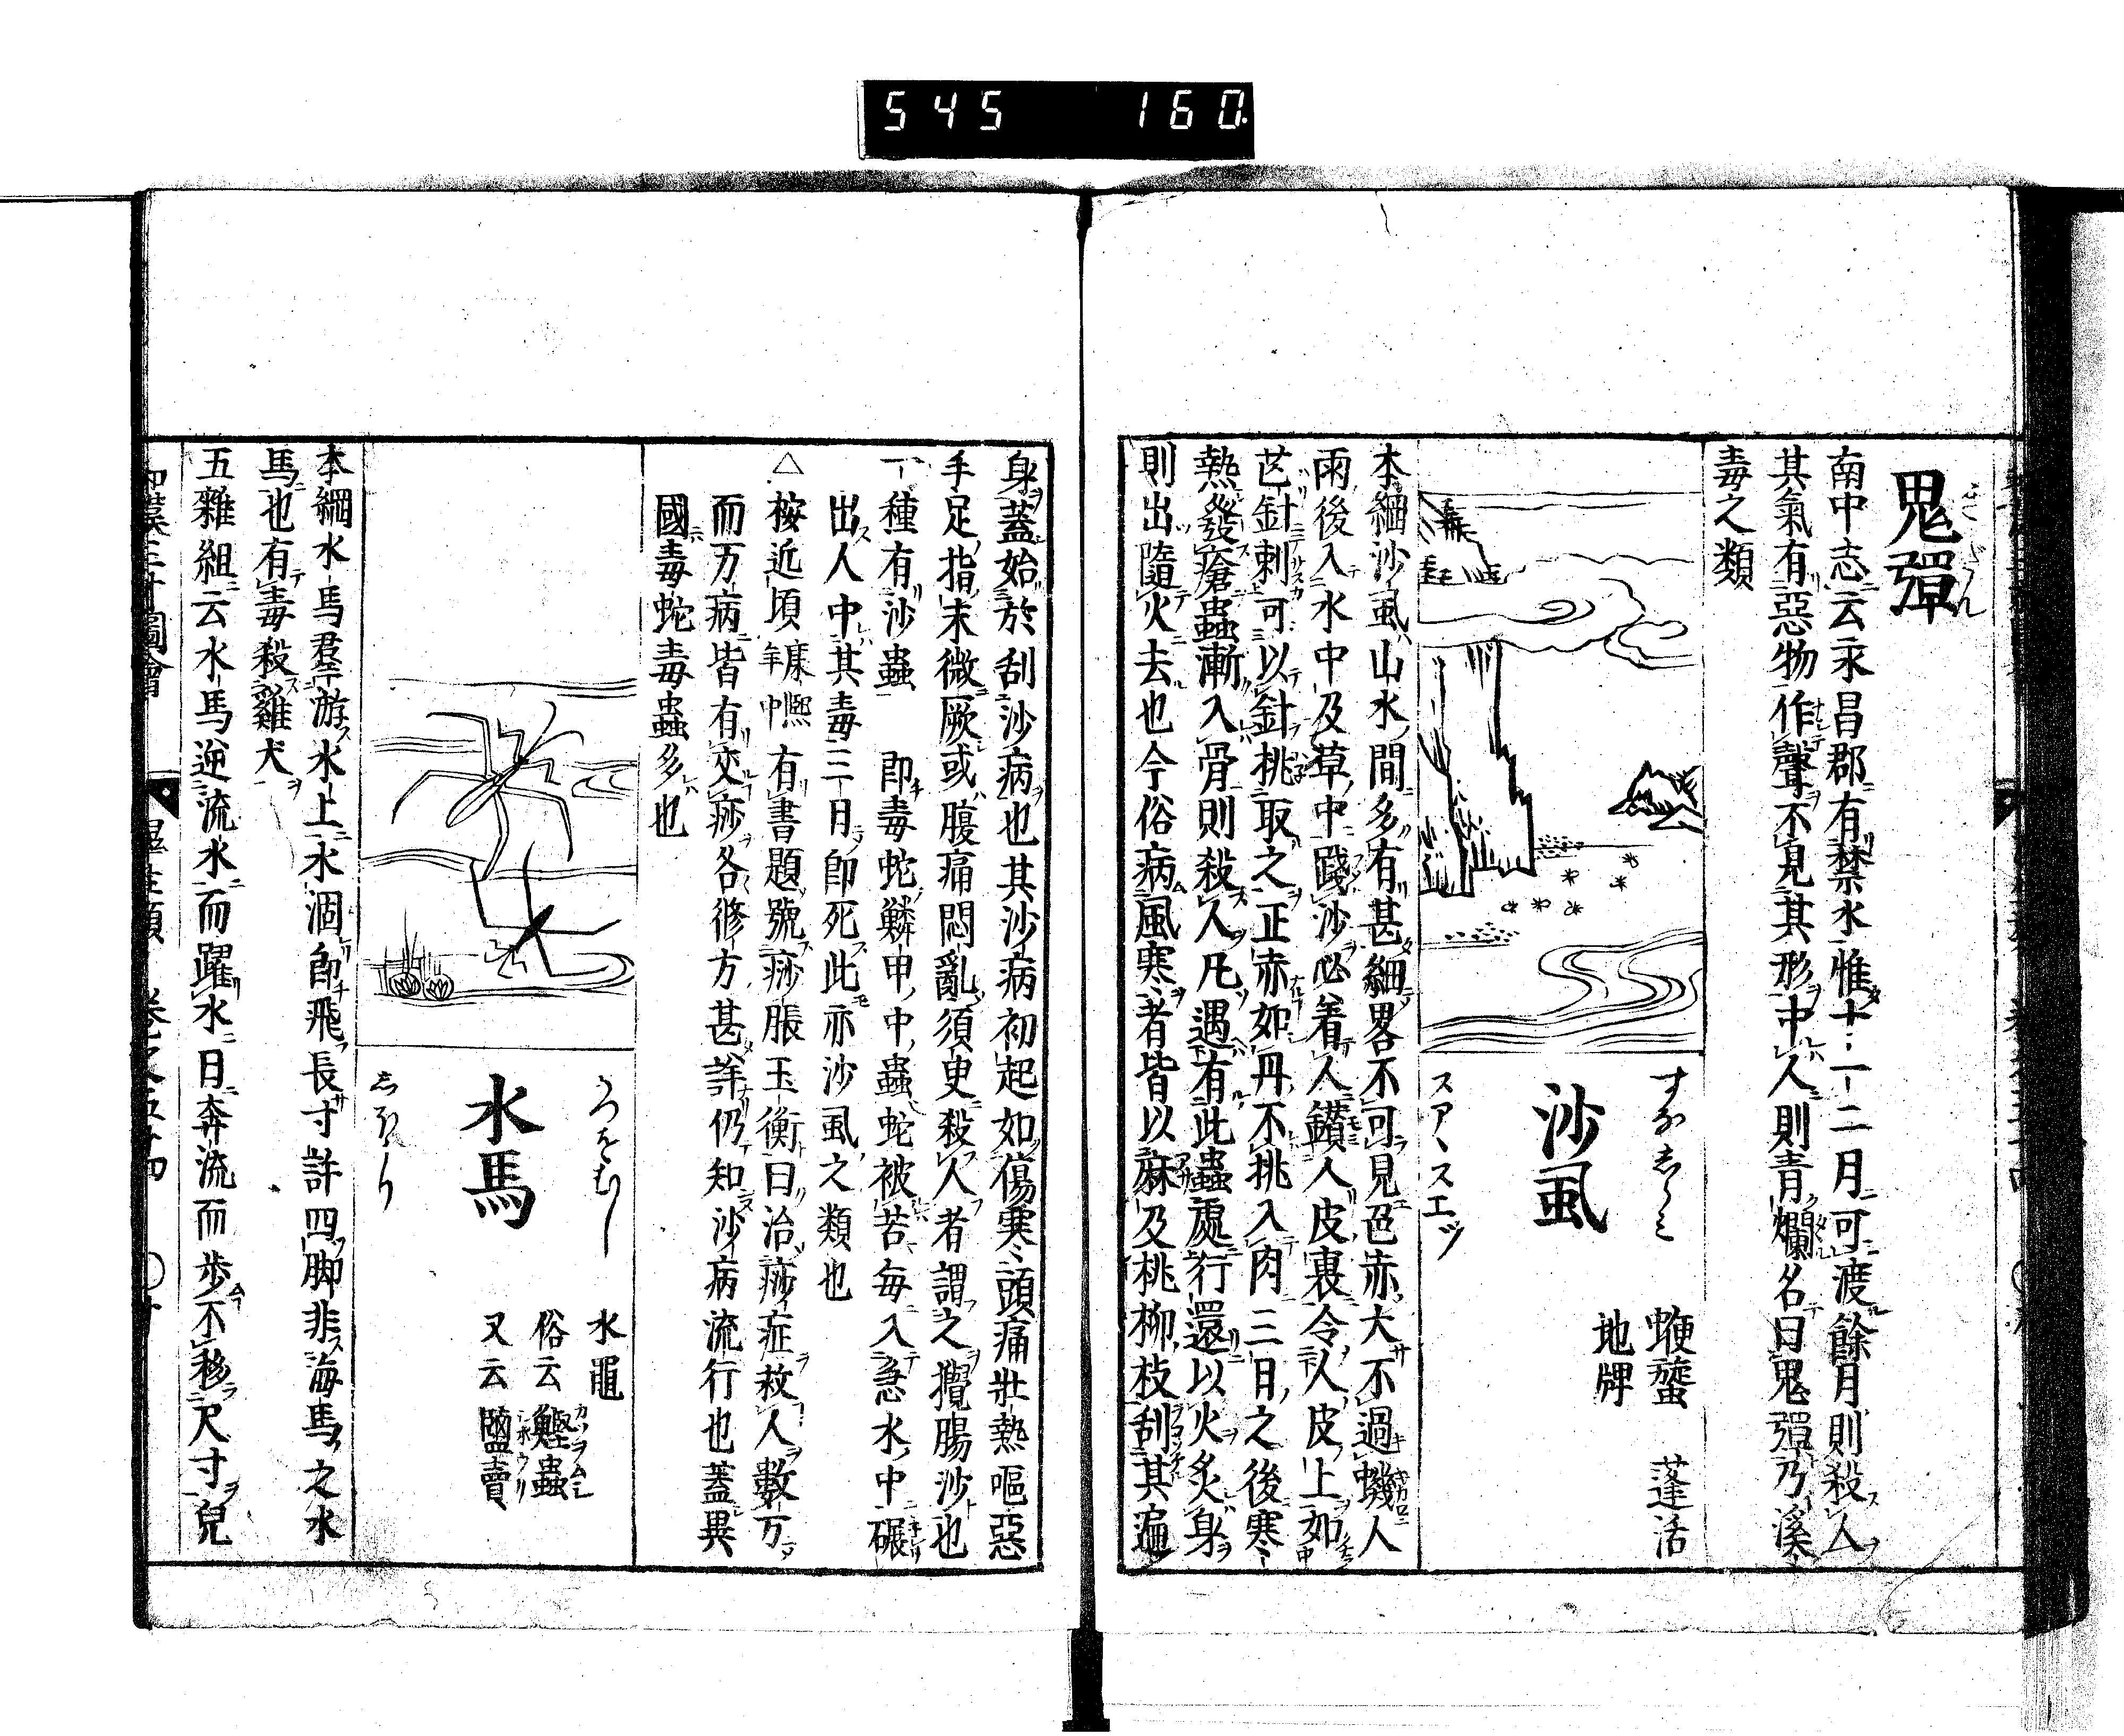 545 160.
鬼彈
きだん
南中志云永昌郡有禁水惟十一二月可渡餘月則殺人
其氣有惡物作聲不見其形中人則青爛名曰鬼彈乃溪
毒之類
すなしらミ
沙虱
スアヽスエツ
蛷螌 蓬活
地牌
本綱沙虱山水間多有甚細畧不可見色赤大不過蟣人
雨後入水中及草中踐沙必着人鑚入皮裏令人皮上如
芒針刺可以針挑取之正赤如丹不挑入肉三日之後寒
熱發瘡蟲漸入骨則殺人凡遇有此蟲處行還以火炙身
則出隨火去也今俗病風寒者皆以麻及桃柳枝刮其遍
身蓋始於刮沙病也其沙病初起如傷寒頭痛壯熱嘔惡
手足指末微厥或腹痛悶亂須臾殺人者謂之攪腸沙也
一種有沙蟲 即毒蛇鱗甲中蟲蛇被苦每入急水中碾
出人中其毒三日即死此亦沙虱之類也
△按近頃康熙年中有書題號痧脹玉衡曰治痧症救人數万
而万病皆有交痧各修方甚詳仍知沙病流行也蓋異
國毒蛇毒蟲多也
かつをむし
水馬
しほうり
水黽
俗云鰹蟲
カツヲムシ
又云鹽賣
シホウリ
本綱水馬羣游水上水涸即飛長寸許四脚非海馬之水
馬也有毒殺雞犬
五雜組云水馬逆流水而躍水日奔流而歩不移尺寸兒
和漢三才圖會 濕生類 卷之五十四